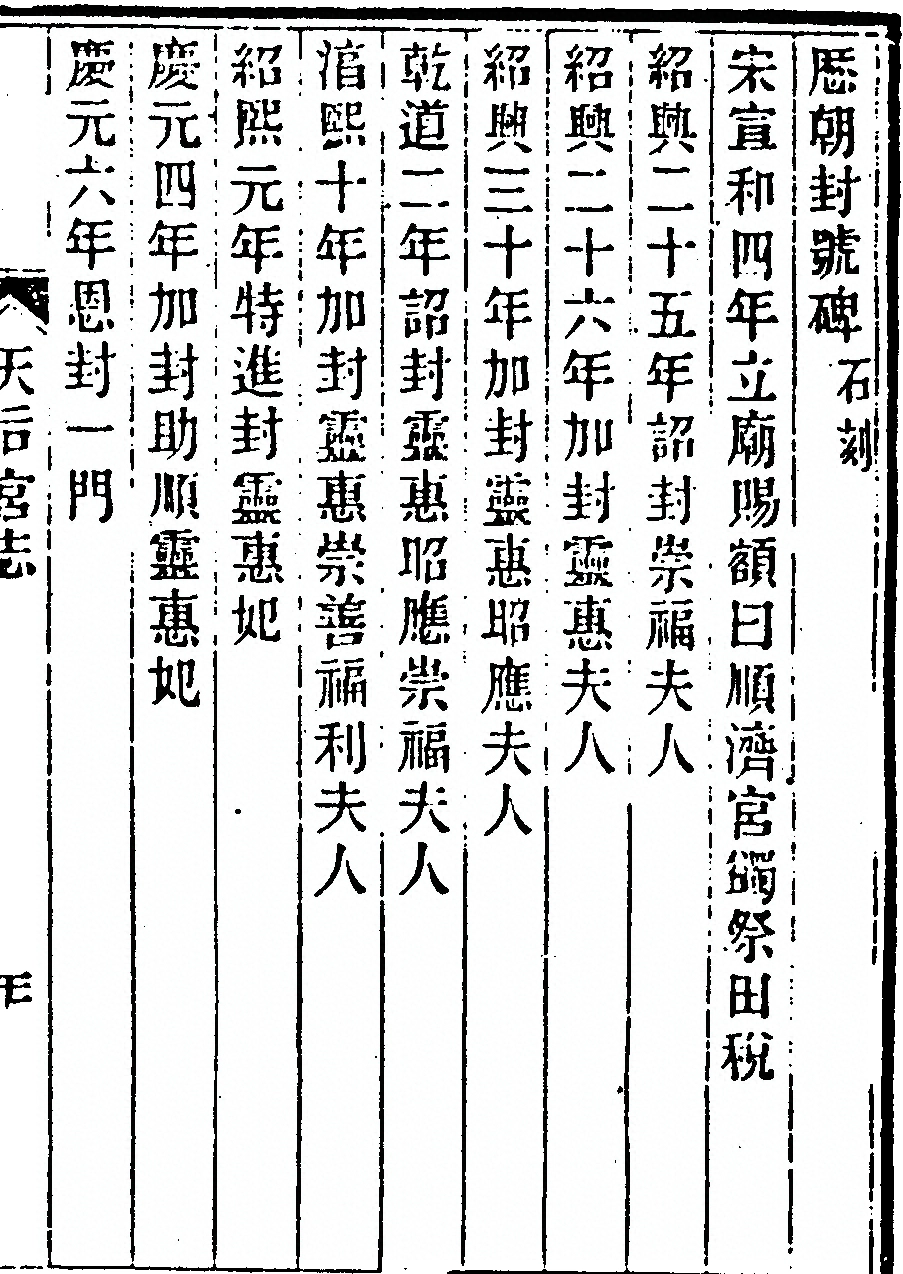 歷朝封號碑石刻
宋宣和四年立廟賜額曰順濟宮蠲祭田稅
紹興二十五年詔封崇福夫人
紹興二十六年加封靈惠夫人
紹興三十年加封靈惠昭應夫人
乾道二年詔封靈惠昭應崇福夫人
淳熙十年加封靈惠崇善福利夫人
紹熙元年特進封靈惠妃
慶元四年加封助順靈惠妃
慶元六年恩封一門
天后宮志